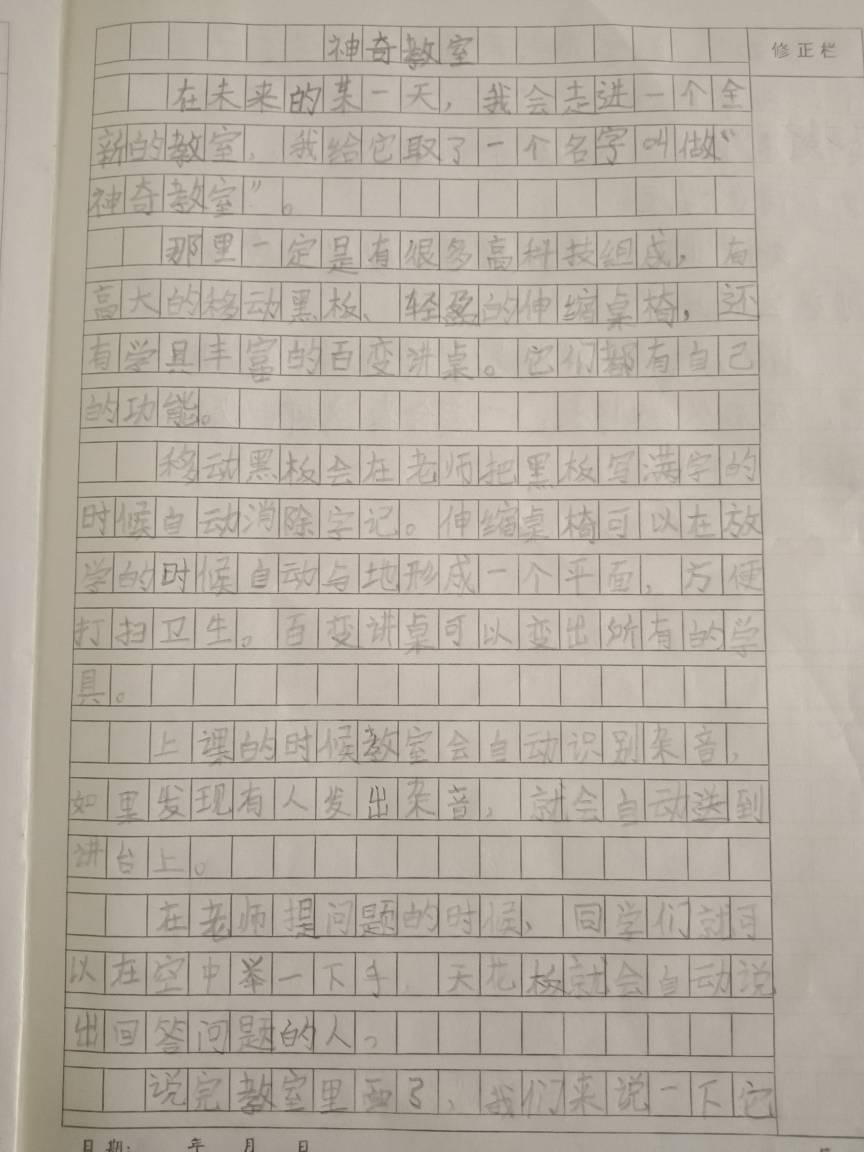 神奇教室
修正栏
在未来的某一天，我会走进一个全
新的教室，我给它取了一个名字叫做“
神奇教室”。
那里一定是有很多高科技组成，有
高大的移动黑板、轻盈的伸缩桌椅，还
有学具丰富的百变讲桌。它们都有自己
的功能。
移动黑板会在老师把黑板写满字的
时候自动消除字记。伸缩桌椅可以在放
学的时候自动与地形成一个平面，方便
打扫卫生。百变讲桌可以变出所有的学
具。
上课的时候教室会自动识别杂音，
如里发现有人发出杂音，就会自动送到
讲台上。
在老师提问题的时候，同学们就可
以在空中举一下手，天花板就会自动说
出回答问题的人。
说完教室里面了，我们来说一下它
日期： 年 月 日